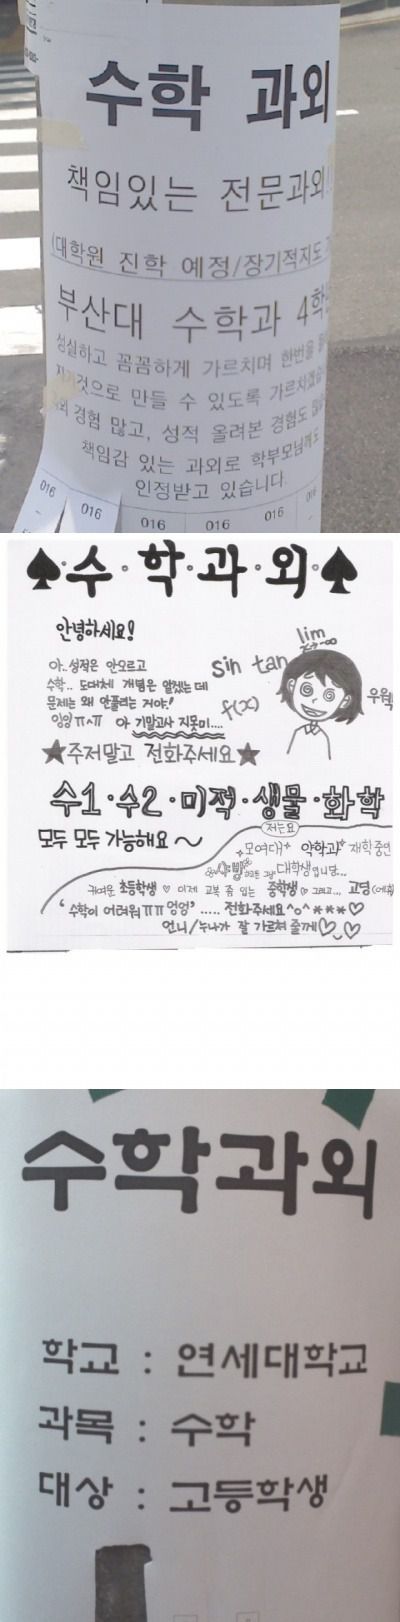 수학 과외
책임있는 전문과외!!
(대학원 진학 예정/장기적지도
부산대 수학과 4학년
성실하고 꼼꼼하게 가르치며 한번을
자기것으로 만들 수 있도록 가르치겠습
경험 많고, 성적 올려본 경험도
책임감 있는 과외로 학부모님께도
인정받고 있습니다
016 016 016 016 016 016
♠·수·학·과·외·♠
안녕하세요!
아.. 성적은 안오르고
수학.. 도대체 개념은 알겠는데
문제는 왜 안풀리는 거야!
엉엉 ㅠㅅㅠ 아 기말고사 지못미....
sin tan lim
f(x)
우웩
★주저말고 전화주세요★
수1·수2·미적·생물·화학
모두 모두 가능해요~
저는요
모여대 약학과 재학중인
대학생입니당...
귀여운 초등학생♡ 이제 교복 좀 입는 중학생♡ 그리고... 고딩
'수학이 어려워ㅠㅠ 엉엉' ..... 전화주세요^o^***♡
언니/누나가 잘 가르쳐 줄께♡♡
수학과외
학교 : 연세대학교
과목 : 수학
대상 : 고등학생